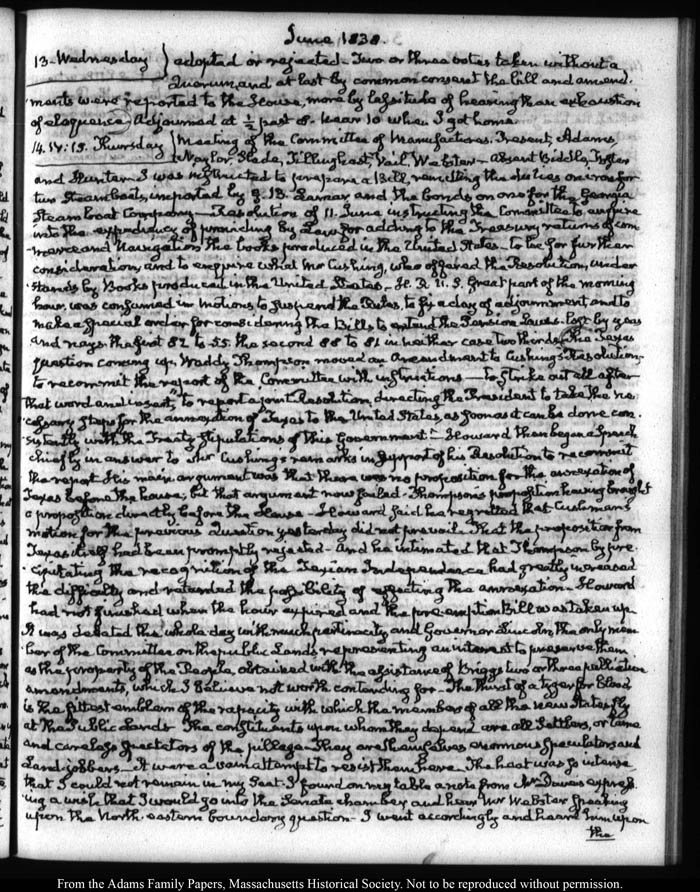 June 1838.
13. Wednesday } adopted or rejected - Two or three votes taken without a
Quorum, and at last by common consent the bill and amend-
ments were reported to the House, more by lassitude of hearing than exhaustion
of eloquence. Adjourned at ½ past 8. Near 10 when I got home.
14. IV: 15. Thursday } Meeting of the Committee of Manufactures. Present, Adams,
Naylor, Slade, Tillinghast, Vail, Webster - Absent Biddle, Foster
and Hunter. I was instructed to prepare a Bill, remitting the duties on iron for
two Steamboats, imported by G. B. Lamar and the bonds on one for the Georgia
Steam boat Company - Resolution of 11. June instructing the Committee to enquire
into the expediency of providing by Law for adding to the Treasury returns of com-
merce and Navigation, the books produced in the United States - to be for further
consideration, and to enquire what Mr Cushing, who offered the Resolution, under-
stands by Books produced in the United States - H. R. U. S. Great part of the morning
hour, was consumed in motions to suspend the Rules, to fix a day of adjournment, and to
make a special order for considering the Bills to extend the Pension Laws. Lost by yeas
and nays, the first 82 to 55. the second 88 to 81 in neither case two thirds. The Texas
question coming up, Waddy Thompson moved an Amendment to Cushing's Resolution
to recommit the report of the Committee with instructions - to strike out all after
that word and insert, "to report a joint Resolution, directing the President to take the ne-
cessary steps for the annexation of Texas to the United States, as soon as it can be done con-
sistently with the Treaty stipulations of this Government" - Howard then began a Speech
chiefly in answer to Mr Cushing's remarks in support of his Resolution to recommit
the report. His main argument was that there was no proposition for the annexation of
Texas before the house, but that argument now failed - Thompson's proposition having brought
a proposition directly before the House - Howard said he regretted that Cushman's
motion for the previous Question yesterday did not prevail. That the proposition from
Texas itself had been promptly rejected - And he intimated that Thompson by pre-
cipitating the recognition of the Texian Independence had greatly increased
the difficulty and retarded the possibility of effecting the annexation - Howard
had not finished when the hour expired and the pre-emption Bill was taken up.
It was debated the whole day with much pertinacity, and Governor Lincoln, the only mem-
ber of the Committee on the public Lands, representing an interest to preserve them
as the property of the People, obtained with the assistance of Briggs two or three palliative
amendments, which I believe not worth contending for - The thirst of a tyger for blood
is the fittest emblem of the rapacity with which the members of all the new States fly
at the Public Lands. The constituents upon whom they depend are all Settlers, or tame
and careless spectators of the pillage. They are themselves enormous speculators and
Land-jobbers - It were a vain attempt to resist them here. The heat was so intense
that I could not remain in my seat. I found on my table a note from Mr Davis express-
ing a wish that I would go into the Senate chamber and hear Mr Webster speaking
upon the North-eastern boundary question - I went accordingly and heard him upon
the
From the Adams Family Papers, Massachusetts Historical Society. Not to be reproduced without permission.